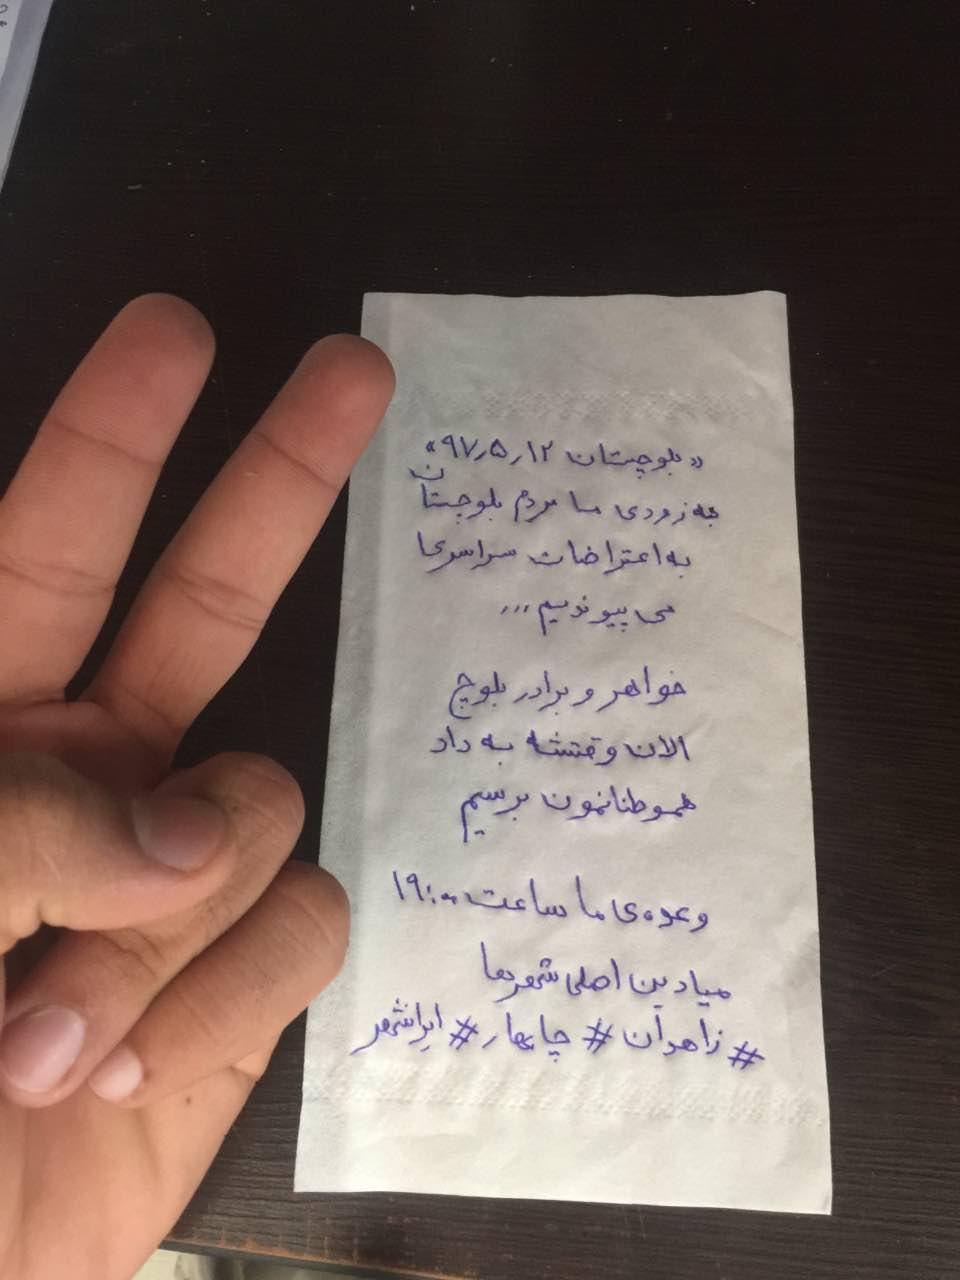 « بلوچستان ۹۷٫۵٫۱۲ »
به زودی ما مردم بلوچستان
به اعتراضات سراسری
می پیوندیم ...
خواهر و برادر بلوچ
الان وقتشه به داد
هموطنانمون برسیم
وعده‌ی ما ساعت ۱۹:۰۰
میادین اصلی شهرها
#زاهدان #چابهار #ایرانشهر